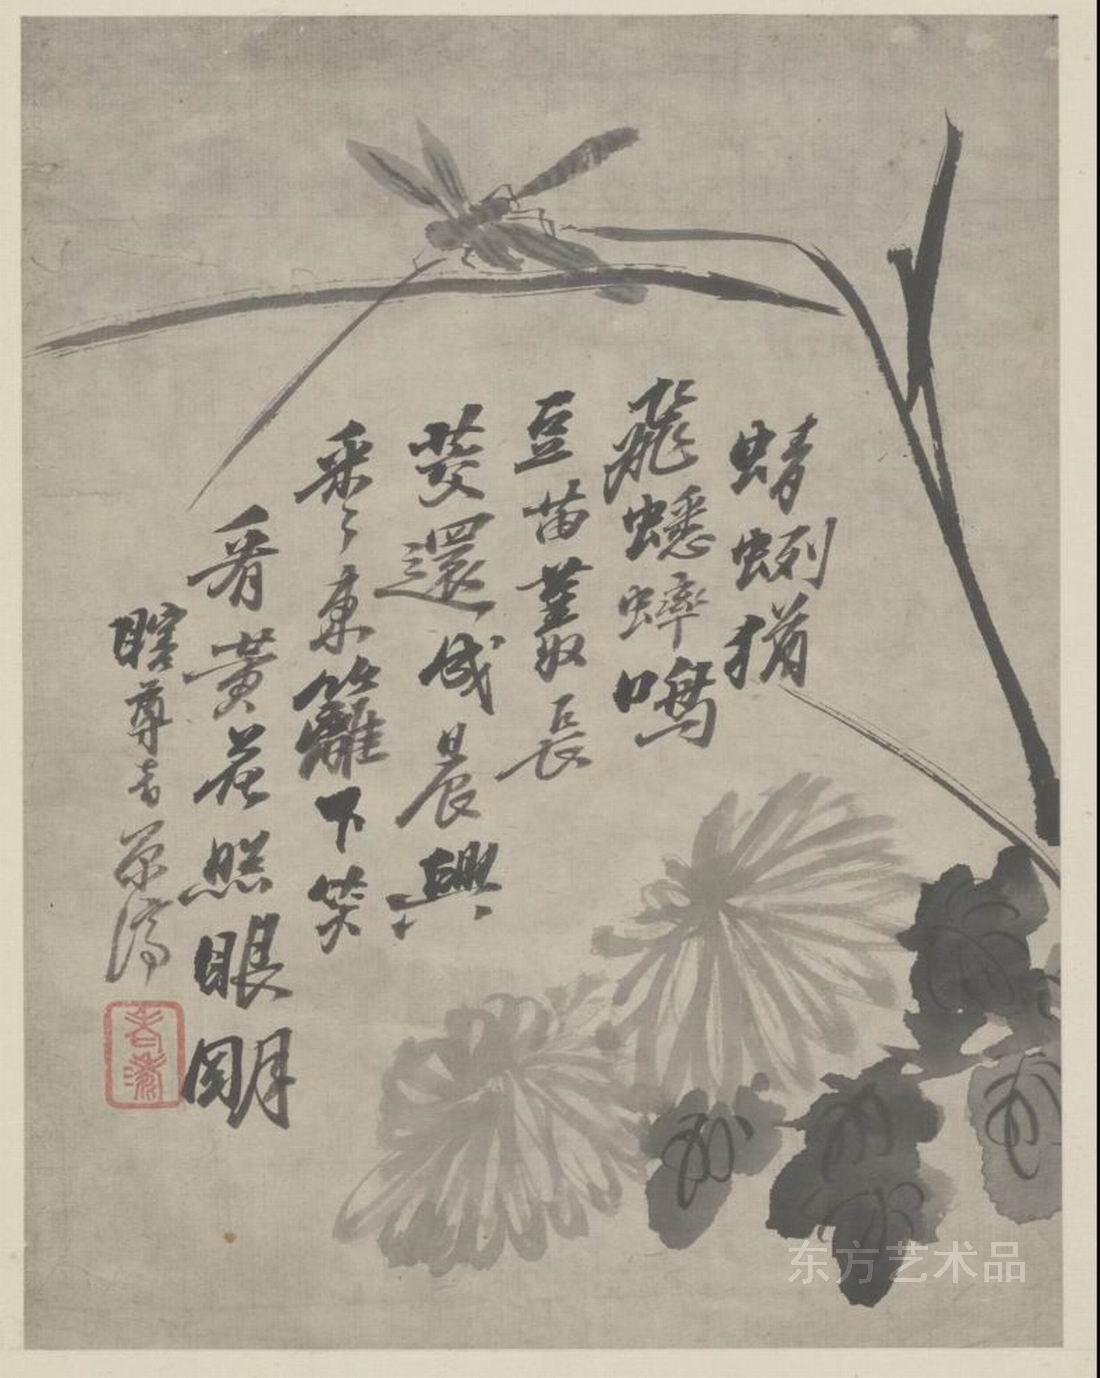 蜻蜊猶
飛蟋蟀鳴
豆苗長
菱還成晨興
采采東籬下笑
看黃花照眼明
瞎尊者原濟
东方艺术品